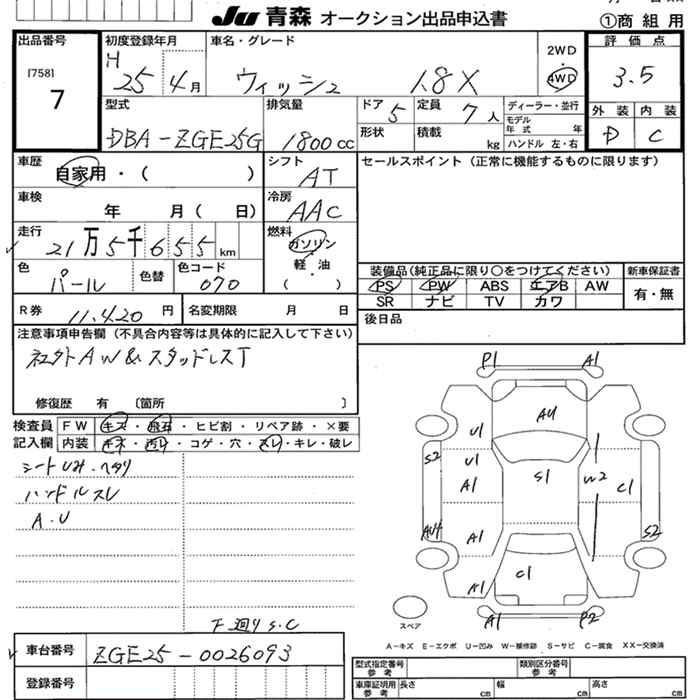 Ju 青森 オークション出品申込書
①商組用
出品番号
[758]
7
初度登録年月
H
25年4月
車名・グレード
ウィッシュ 1.8X
2WD
・
4WD
評価点
3.5
外装 内装
D C
型式
DBA-ZGE25G
排気量
1800cc
ドア 5
定員 7人
形状
積載 kg
ディーラー・並行
モデル年式 年
ハンドル 左・右
車歴
自家用・( )
シフト
AT
セールスポイント(正常に機能するものに限ります)
車検
年 月( 日)
冷房
AAC
走行
21万5千655km
燃料
ガソリン
・
軽・油
( )
色
パール
色替
色コード
070
装備品(純正品に限り○をつけてください)
PS PW ABS エアB AW
SR ナビ TV カワ
新車保証書
有・無
R券 11,420円
名変期限 月 日
後日品
注意事項申告欄(不具合内容等は具体的に記入して下さい)
社外AW&スタッドレスT
修復歴 有 〔箇所 〕
検査員記入欄
FW キズ・飛石・ヒビ割・リペア跡・×要
内装 キズ・汚レ・コゲ・穴・スレ・キレ・破レ
シートU汚・ヘタリ
ハンドルスレ
A.U
下廻りS.C
P1 A1
AU
U1
S2
U1
A1
S1
W2
C1
AU4
A1
S2
C1
A1
A1 P2
スペア
A-キズ E-エクボ U-凹み W-補修跡 S-サビ C-腐食 XX-交換済
車台番号
ZGE25-0026093
登録番号
型式指定番号
参考
類別区分番号
参考
車庫証明用
参考
長さ cm
幅 cm
高さ cm